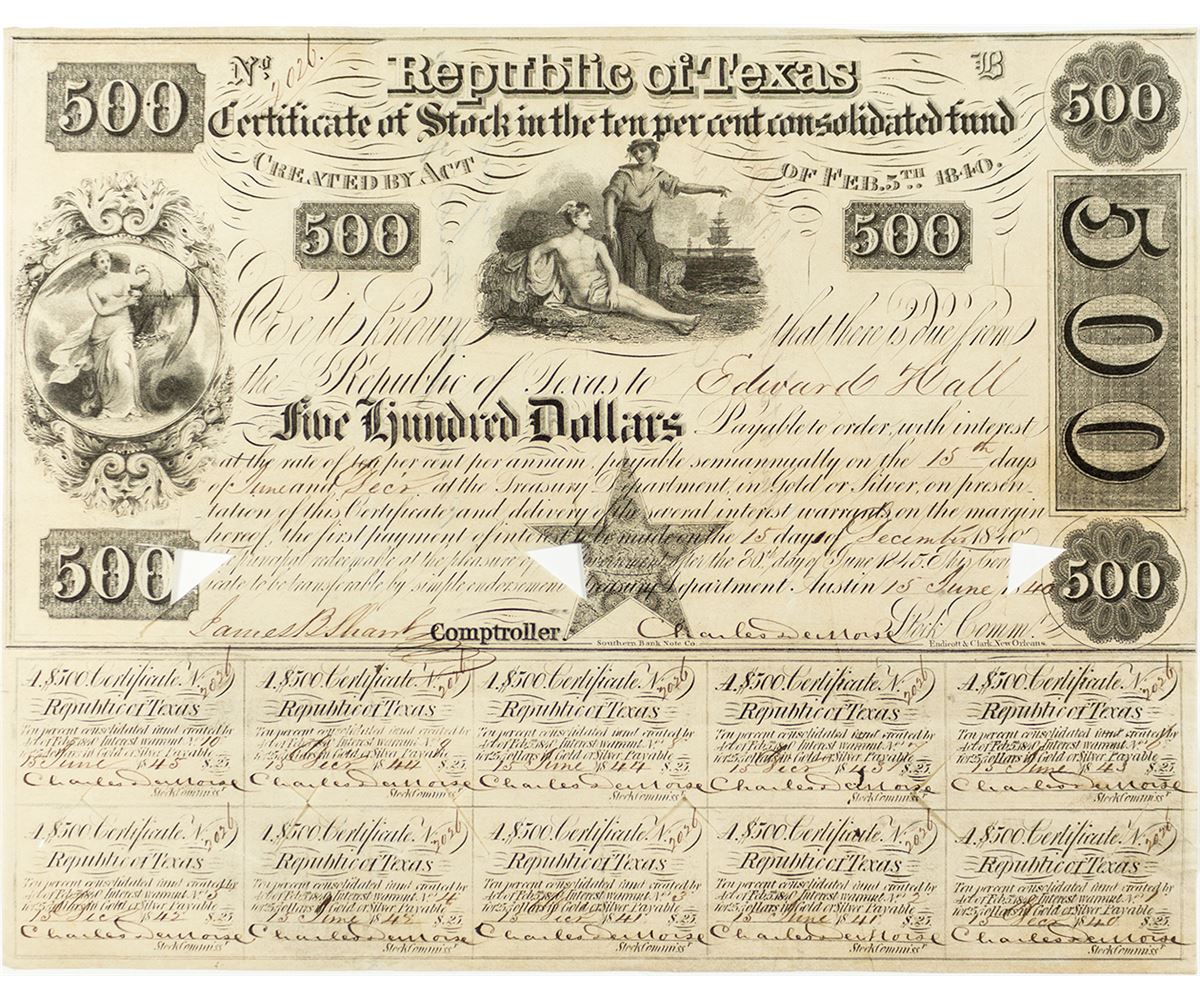 500 No. 2026. Republic of Texas B 500
Certificate of Stock in the ten per cent consolidated fund
CREATED BY ACT OF FEB. 5TH 1840.
500 500
500
Be it known that there is due from
the Republic of Texas to Edward Hall
Five Hundred Dollars Payable to order, with interest
at the rate of ten per cent per annum, payable semiannually on the 15th days
of June and Decr. at the Treasury Department, in Gold or Silver, on presen-
tation of this Certificate and delivery of the several interest warrants on the margin
hereof, the first payment of interest to be made on the 15 day of December 1840
500 Principal redeemable at the pleasure of after the 30th day of June 1845. This Certi- 500
cate to be transferable by simple endorsement Treasury Department Austin 15 June 1840
James B Shaw Comptroller. Charles DeMorse Stock Commr.
Southern Bank Note Co. Endicott & Clark, New Orleans.
A $500. Certificate N. 2026 A $500. Certificate N. 2026 A $500. Certificate N. 2026 A $500. Certificate N. 2026 A $500. Certificate N. 2026
Republic of Texas Republic of Texas Republic of Texas Republic of Texas Republic of Texas
Ten per cent consolidated fund created by Ten per cent consolidated fund created by Ten per cent consolidated fund created by Ten per cent consolidated fund created by Ten per cent consolidated fund created by
Act of Feb. 5 1840 Interest warrant No. 10 Act of Feb. 5 1840 Interest warrant No. 9 Act of Feb. 5 1840 Interest warrant No. 8 Act of Feb. 5 1840 Interest warrant No. 7 Act of Feb. 5 1840 Interest warrant No. 6
for 25 dollars in Gold or Silver Payable for 25 dollars in Gold or Silver Payable for 25 dollars in Gold or Silver Payable for 25 dollars in Gold or Silver Payable for 25 dollars in Gold or Silver Payable
15 June 1845 $.25 15 Decr 1844 $.25 15 June 1844 $.25 15 Decr 1843 $.25 15 June 1843 $.25
Charles DeMorse Charles DeMorse Charles DeMorse Charles DeMorse Charles DeMorse
Stock Commissr. Stock Commissr. Stock Commissr. Stock Commissr. Stock Commissr.
A $500. Certificate N. 2026 A $500. Certificate N. 2026 A $500. Certificate N. 2026 A $500. Certificate N. 2026 A $500. Certificate N. 2026
Republic of Texas Republic of Texas Republic of Texas Republic of Texas Republic of Texas
Ten per cent consolidated fund created by Ten per cent consolidated fund created by Ten per cent consolidated fund created by Ten per cent consolidated fund created by Ten per cent consolidated fund created by
Act of Feb. 5 1840 Interest warrant No. 5 Act of Feb. 5 1840 Interest warrant No. 4 Act of Feb. 5 1840 Interest warrant No. 3 Act of Feb. 5 1840 Interest warrant No. 2 Act of Feb. 5 1840 Interest warrant No. 1
for 25 dollars in Gold or Silver Payable for 25 dollars in Gold or Silver Payable for 25 dollars in Gold or Silver Payable for 25 dollars in Gold or Silver Payable for 25 dollars in Gold or Silver Payable
15 Decr 1842 $.25 15 June 1842 $.25 15 Decr 1841 $.25 15 June 1841 $.25 15 Decr 1840 $.25
Charles DeMorse Charles DeMorse Charles DeMorse Charles DeMorse Charles DeMorse
Stock Commissr. Stock Commissr. Stock Commissr. Stock Commissr. Stock Commissr.